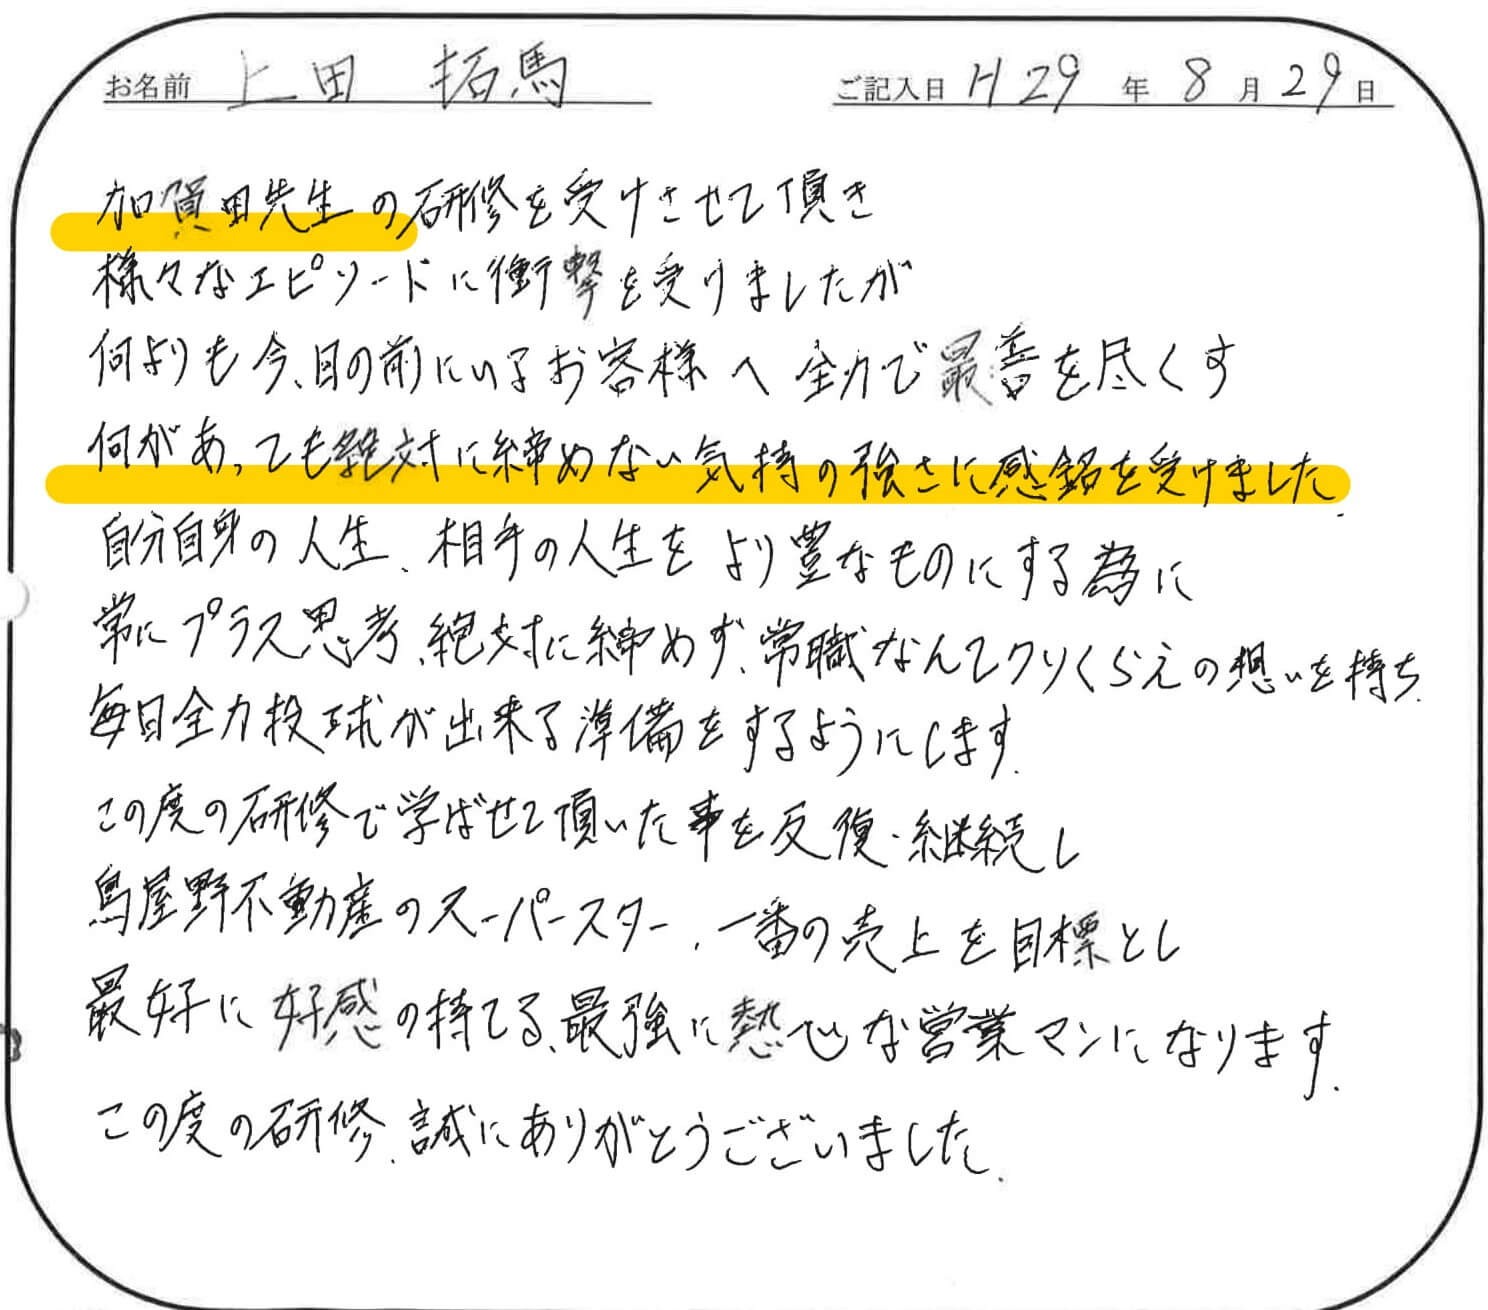 お名前 上田 拓馬 ご記入日 H29年8月29日
加賀田先生の研修を受けさせて頂き
様々なエピソードに衝撃を受けましたが
何よりも今、目の前にいるお客様へ全力で最善を尽くす
何があっても絶対に締めない気持の強さに感銘を受けました.
自分自身の人生、相手の人生をより豊なものにする為に
常にプラス思考、絶対に締めず、常職なんてクソくらえの想いを持ち
毎日全力投球が出来る準備をするようにします.
この度の研修で学ばせて頂いた事を反復・継続し
鳥屋野不動産のスーパースター、一番の売上を目標とし
最好に好感の持てる、最強に熱心な営業マンになります.
この度の研修、誠にありがとうございました.